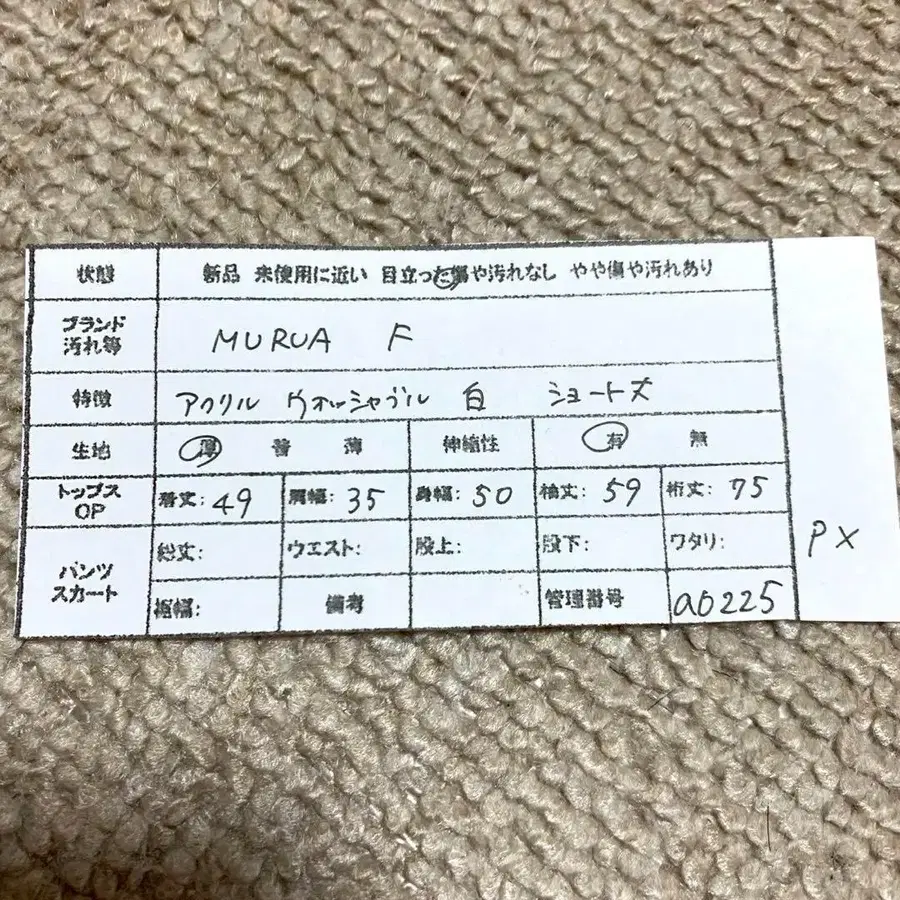 状態 新品 未使用に近い 目立った傷や汚れなし やや傷や汚れあり
ブランド
汚れ等 MURUA F
特徴 アクリル ウォッシャブル 白 ショート丈
生地 厚 普 薄 伸縮性 有 無
トップス
OP 着丈: 49 肩幅: 35 身幅: 50 袖丈: 59 裄丈: 75
パンツ
スカート 総丈: ウエスト: 股上: 股下: ワタリ:
裾幅: 備考 管理番号 a0225
PX